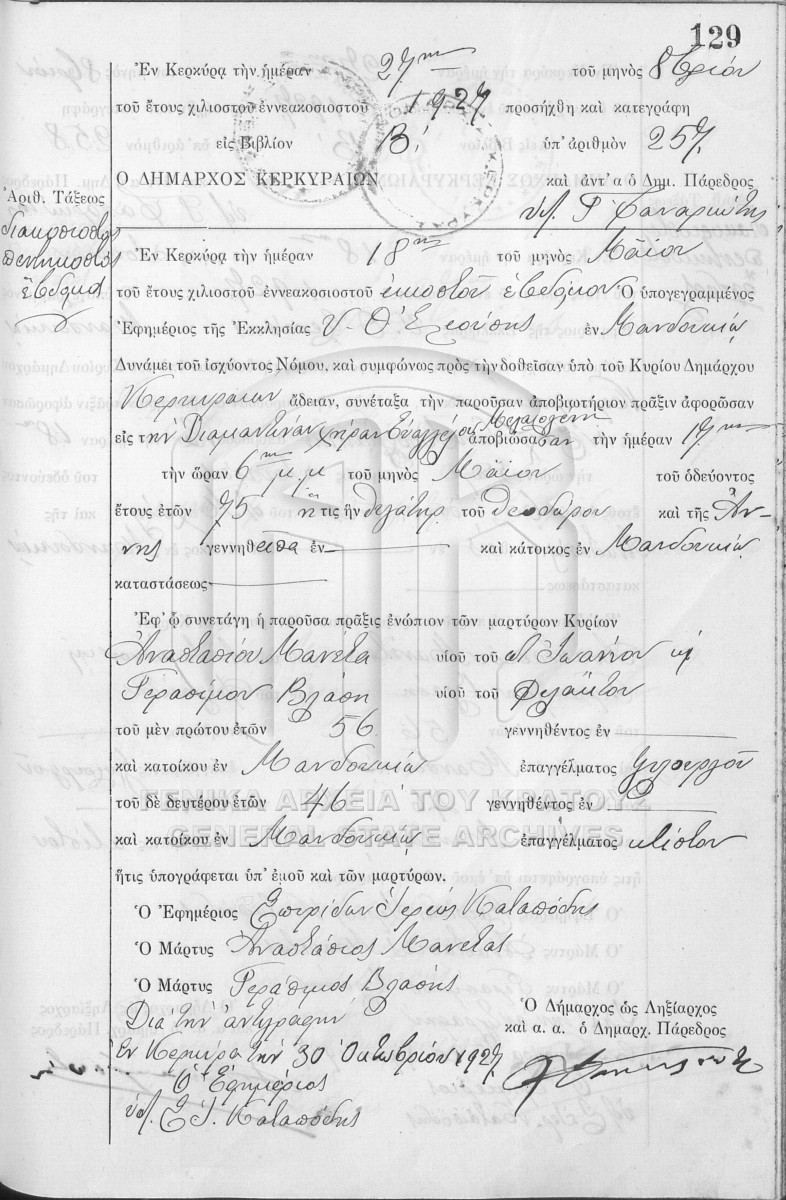 129
Ἐν Κερκύρᾳ τὴν ἡμέραν 27ην τοῦ μηνὸς 8βρίου
τοῦ ἔτους χιλιοστοῦ ἐννεακοσιοστοῦ 1927 προσήχθη καὶ κατεγράφη
εἰς Βιβλίον Β' ὑπ' ἀριθμὸν 257
Ο ΔΗΜΑΡΧΟΣ ΚΕΡΚΥΡΑΙΩΝ καὶ ἀντ' α ὁ Δημ. Πάρεδρος
Ἀριθ. Τάξεως
διακοσιοστὸς
πεντηκοστὸς
ἕβδομος
Ἐν Κερκύρᾳ τὴν ἡμέραν 18ην τοῦ μηνὸς Μαΐου
τοῦ ἔτους χιλιοστοῦ ἐννεακοσιοστοῦ εἰκοστοῦ ἑβδόμου Ὁ ὑπογεγραμμένος
Ἐφημέριος τῆς Ἐκκλησίας Υ. Θ. ἐν Μανδουκίῳ
Δυνάμει τοῦ ἰσχύοντος Νόμου, καὶ συμφώνως πρὸς τὴν δοθεῖσαν ὑπὸ τοῦ Κυρίου Δημάρχου
Κερκυραίων ἄδειαν, συνέταξα τὴν παροῦσαν ἀποβιωτήριον πρᾶξιν ἀφορῶσαν
εἰς τὴν Διαμαντίναν χήραν Εὐαγγέλου ἀποβιώσασαν τὴν ἡμέραν 17ην
τὴν ὥραν 6ην μ.μ τοῦ μηνὸς Μαΐου τοῦ ὁδεύοντος
ἔτους ἐτῶν 75 ἥτις ἦν θυγάτηρ τοῦ Θεοδώρου καὶ τῆς Ἄν-
νης γεννηθεῖσα ἐν καὶ κάτοικος ἐν Μανδουκίῳ
καταστάσεως
Ἐφ' ᾧ συνετάγη ἡ παροῦσα πρᾶξις ἐνώπιον τῶν μαρτύρων Κυρίων
Ἀναστασίου Μανέτα υἱοῦ τοῦ Ἰωάννου κ
Γερασίμου Βλάση υἱοῦ τοῦ
τοῦ μὲν πρώτου ἐτῶν 56 γεννηθέντος ἐν
καὶ κατοίκου ἐν Μανδουκίῳ ἐπαγγέλματος ξυλουργοῦ
τοῦ δὲ δευτέρου ἐτῶν 46 γεννηθέντος ἐν
ΓΕΝΙΚΑ ΑΡΧΕΙΑ ΤΟΥ ΚΡΑΤΟΥΣ
GENERAL STATE ARCHIVES
καὶ κατοίκου ἐν Μανδουκίῳ ἐπαγγέλματος κτίστου
ἥτις ὑπογράφεται ὑπ' ἐμοῦ καὶ τῶν μαρτύρων.
Ὁ Ἐφημέριος Σπυρίδων Ἱερεὺς Καταπόδης
Ὁ Μάρτυς Ἀναστάσιος Μανέτας
Ὁ Μάρτυς Γεράσιμος Βλάσης
Διὰ τὴν ἀντιγραφὴν
Ἐν Κερκύρᾳ τὴν 30 Ὀκτωβρίου 1927
Ὁ Ἐφημέριος
ὑπ. Σ. Ι. Καταπόδης
Ὁ Δήμαρχος ὡς Ληξίαρχος
καὶ α. α. ὁ Δημαρχ. Πάρεδρος